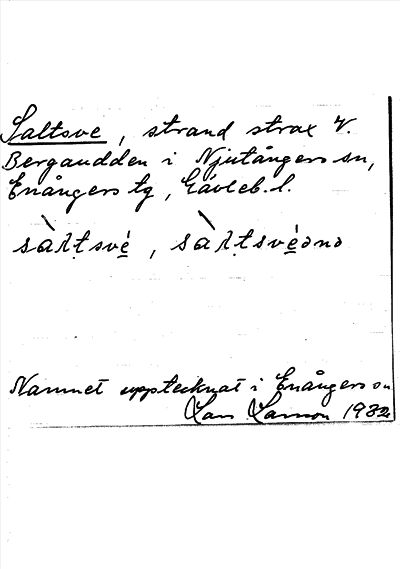 Saltsve, strand strax V.
Bergaudden i Njutångers sn,
Enångers tg, Gävleb. l.
sàlṭsvé̱, sàlṭsvé̱ɔnɔ
Namnet upptecknat i Enångers sn
Lars Larsson 1932